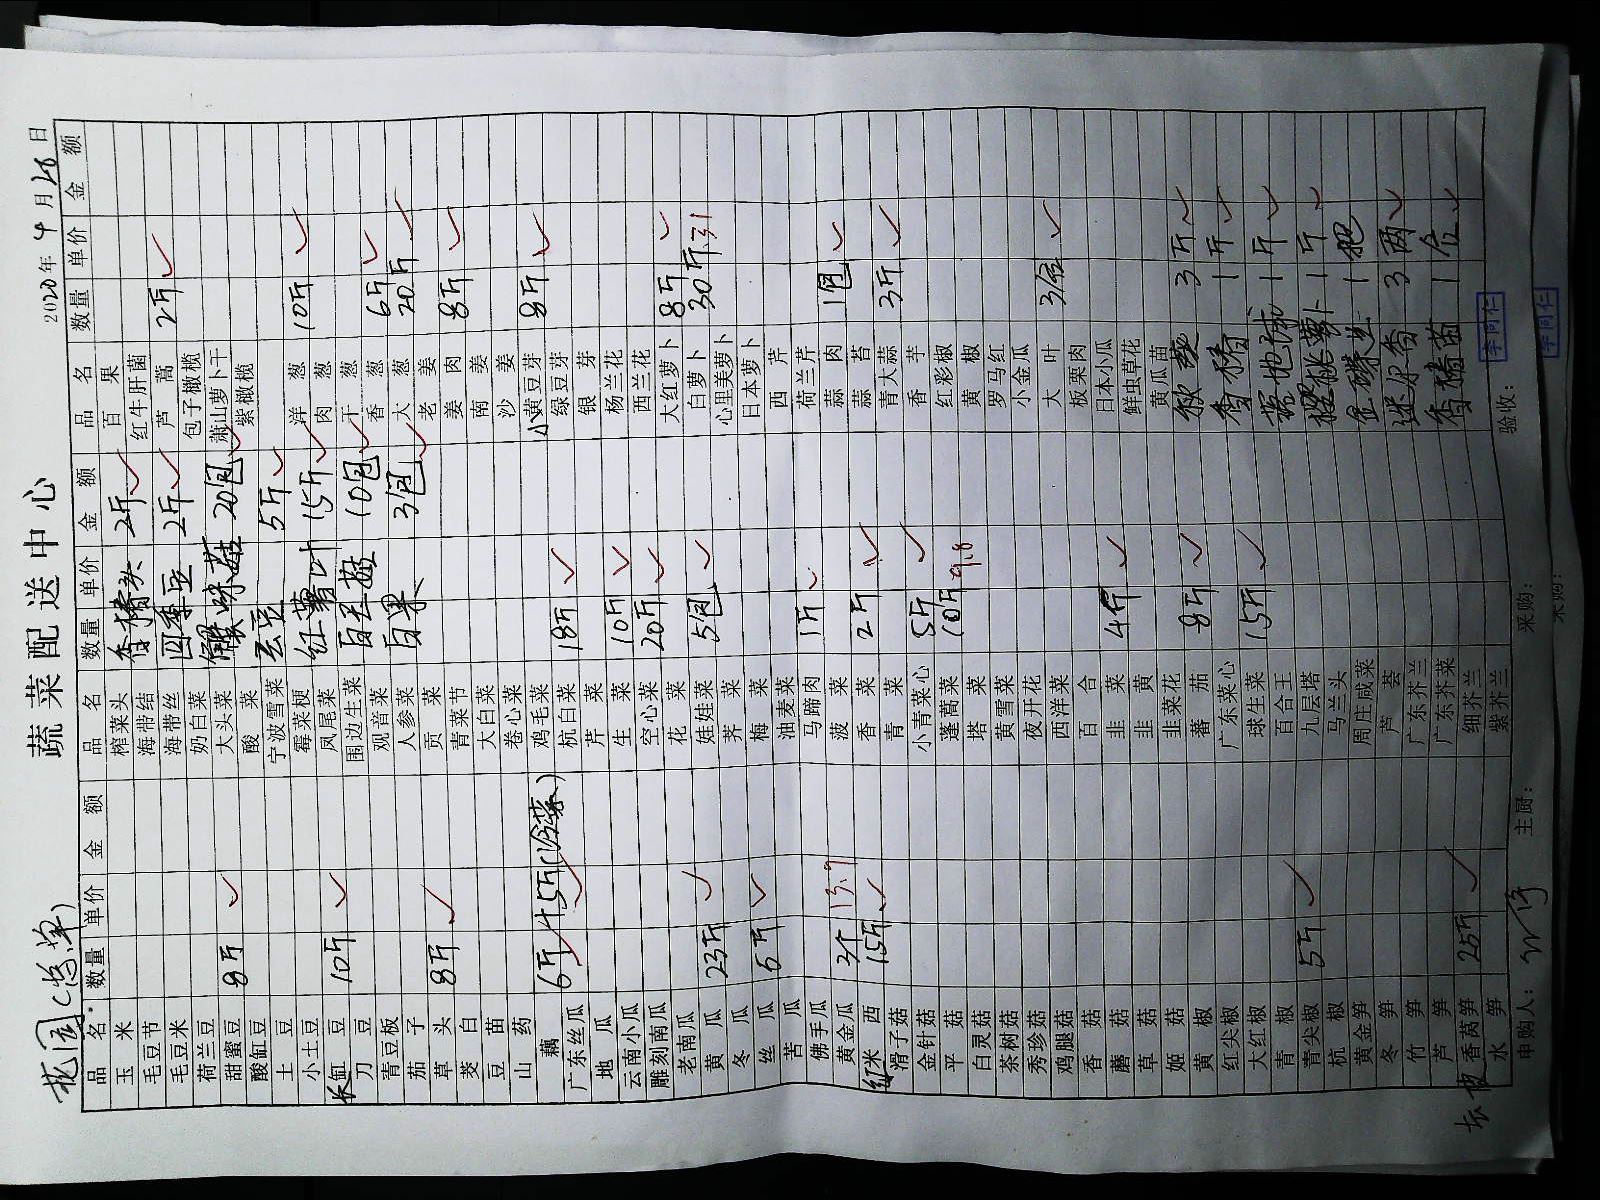 花园(总单)
蔬菜配送中心
2020年4月28日
品名 数量 单价 金额
玉米
毛豆节
毛豆米
荷兰豆
甜蜜豆 8斤
酸缸豆
土豆
小土豆
长缸豆 10斤
刀豆
青豆板
茄子
草头 8斤
茭白
豆苗
山药
藕 6斤 45斤(冷菜)
广东丝瓜
地瓜
云南小瓜
雕刻南瓜
老南瓜
黄瓜 23斤
冬瓜
丝瓜 5斤
苦瓜
佛手瓜
黄金瓜 3个 13.9
红米西 15斤
滑子菇
金针菇
平菇
白灵菇
茶树菇
秀珍菇
鸡腿菇
香菇
蘑菇
草菇
姬菇
黄椒
红尖椒
大红椒
青椒
青尖椒 5斤
杭椒
黄金笋
冬笋
竹笋
芦笋
香莴笋 25斤
水笋
品名 数量 单价 金额
榨菜头 香椿头 2斤
海带结
海带丝 四季豆 2斤
奶白菜
大头菜 蟹味菇 20包
酸菜
宁波雪菜 毛豆 5斤
霉菜梗
凤尾菜 红薯叶 15斤
围边生菜 白玉菇 10包
观音菜
人参菜 白果 3包
贡菜
青菜节
大白菜
卷心菜
鸡毛菜
杭白菜 18斤
芹菜
生菜 10斤
空心菜 20斤
花菜
娃娃菜 5包
荠菜
梅菜
油麦菜
马蹄肉 1斤
菠菜
香菜 2斤
青菜
小青菜心 5斤
蓬蒿菜 10斤 9.8
塔菜
黄雪菜
夜开花
西洋菜
百合
韭菜 4斤
韭黄
韭菜花
蕃茄 8斤
广东菜心
球生菜 15斤
百合王
九层塔
马兰头
周庄咸菜
芦荟
广东芥兰
广东芥菜
细芥兰
紫芥兰
品名 数量 单价 金额
百果
红牛肝菌
芦蒿 2斤
包子橄榄
萧山萝卜干
紫橄榄
洋葱 10斤
肉葱
干葱
香葱 6斤
大葱 20斤
老姜
姜肉 8斤
南姜
沙姜
小黄豆芽 8斤
绿豆芽
银芽
杨兰花
西兰花
大红萝卜 8斤
白萝卜 30斤 31
心里美萝卜
日本萝卜
西芹
荷兰芹
蒜肉 1包
蒜苔
青大蒜 3斤
香芋
红彩椒
黄椒
罗马红
小金瓜
大叶 3盒
板栗肉
日本小瓜
鲜虫草花
黄瓜苗
秋葵 3斤
香椿 1斤
1斤
樱桃萝卜 1斤
1把
迷尔香 3两
香椿苗 1盒
申购人:
主厨:
采购:
验收:
李同仁
采购:
李同仁